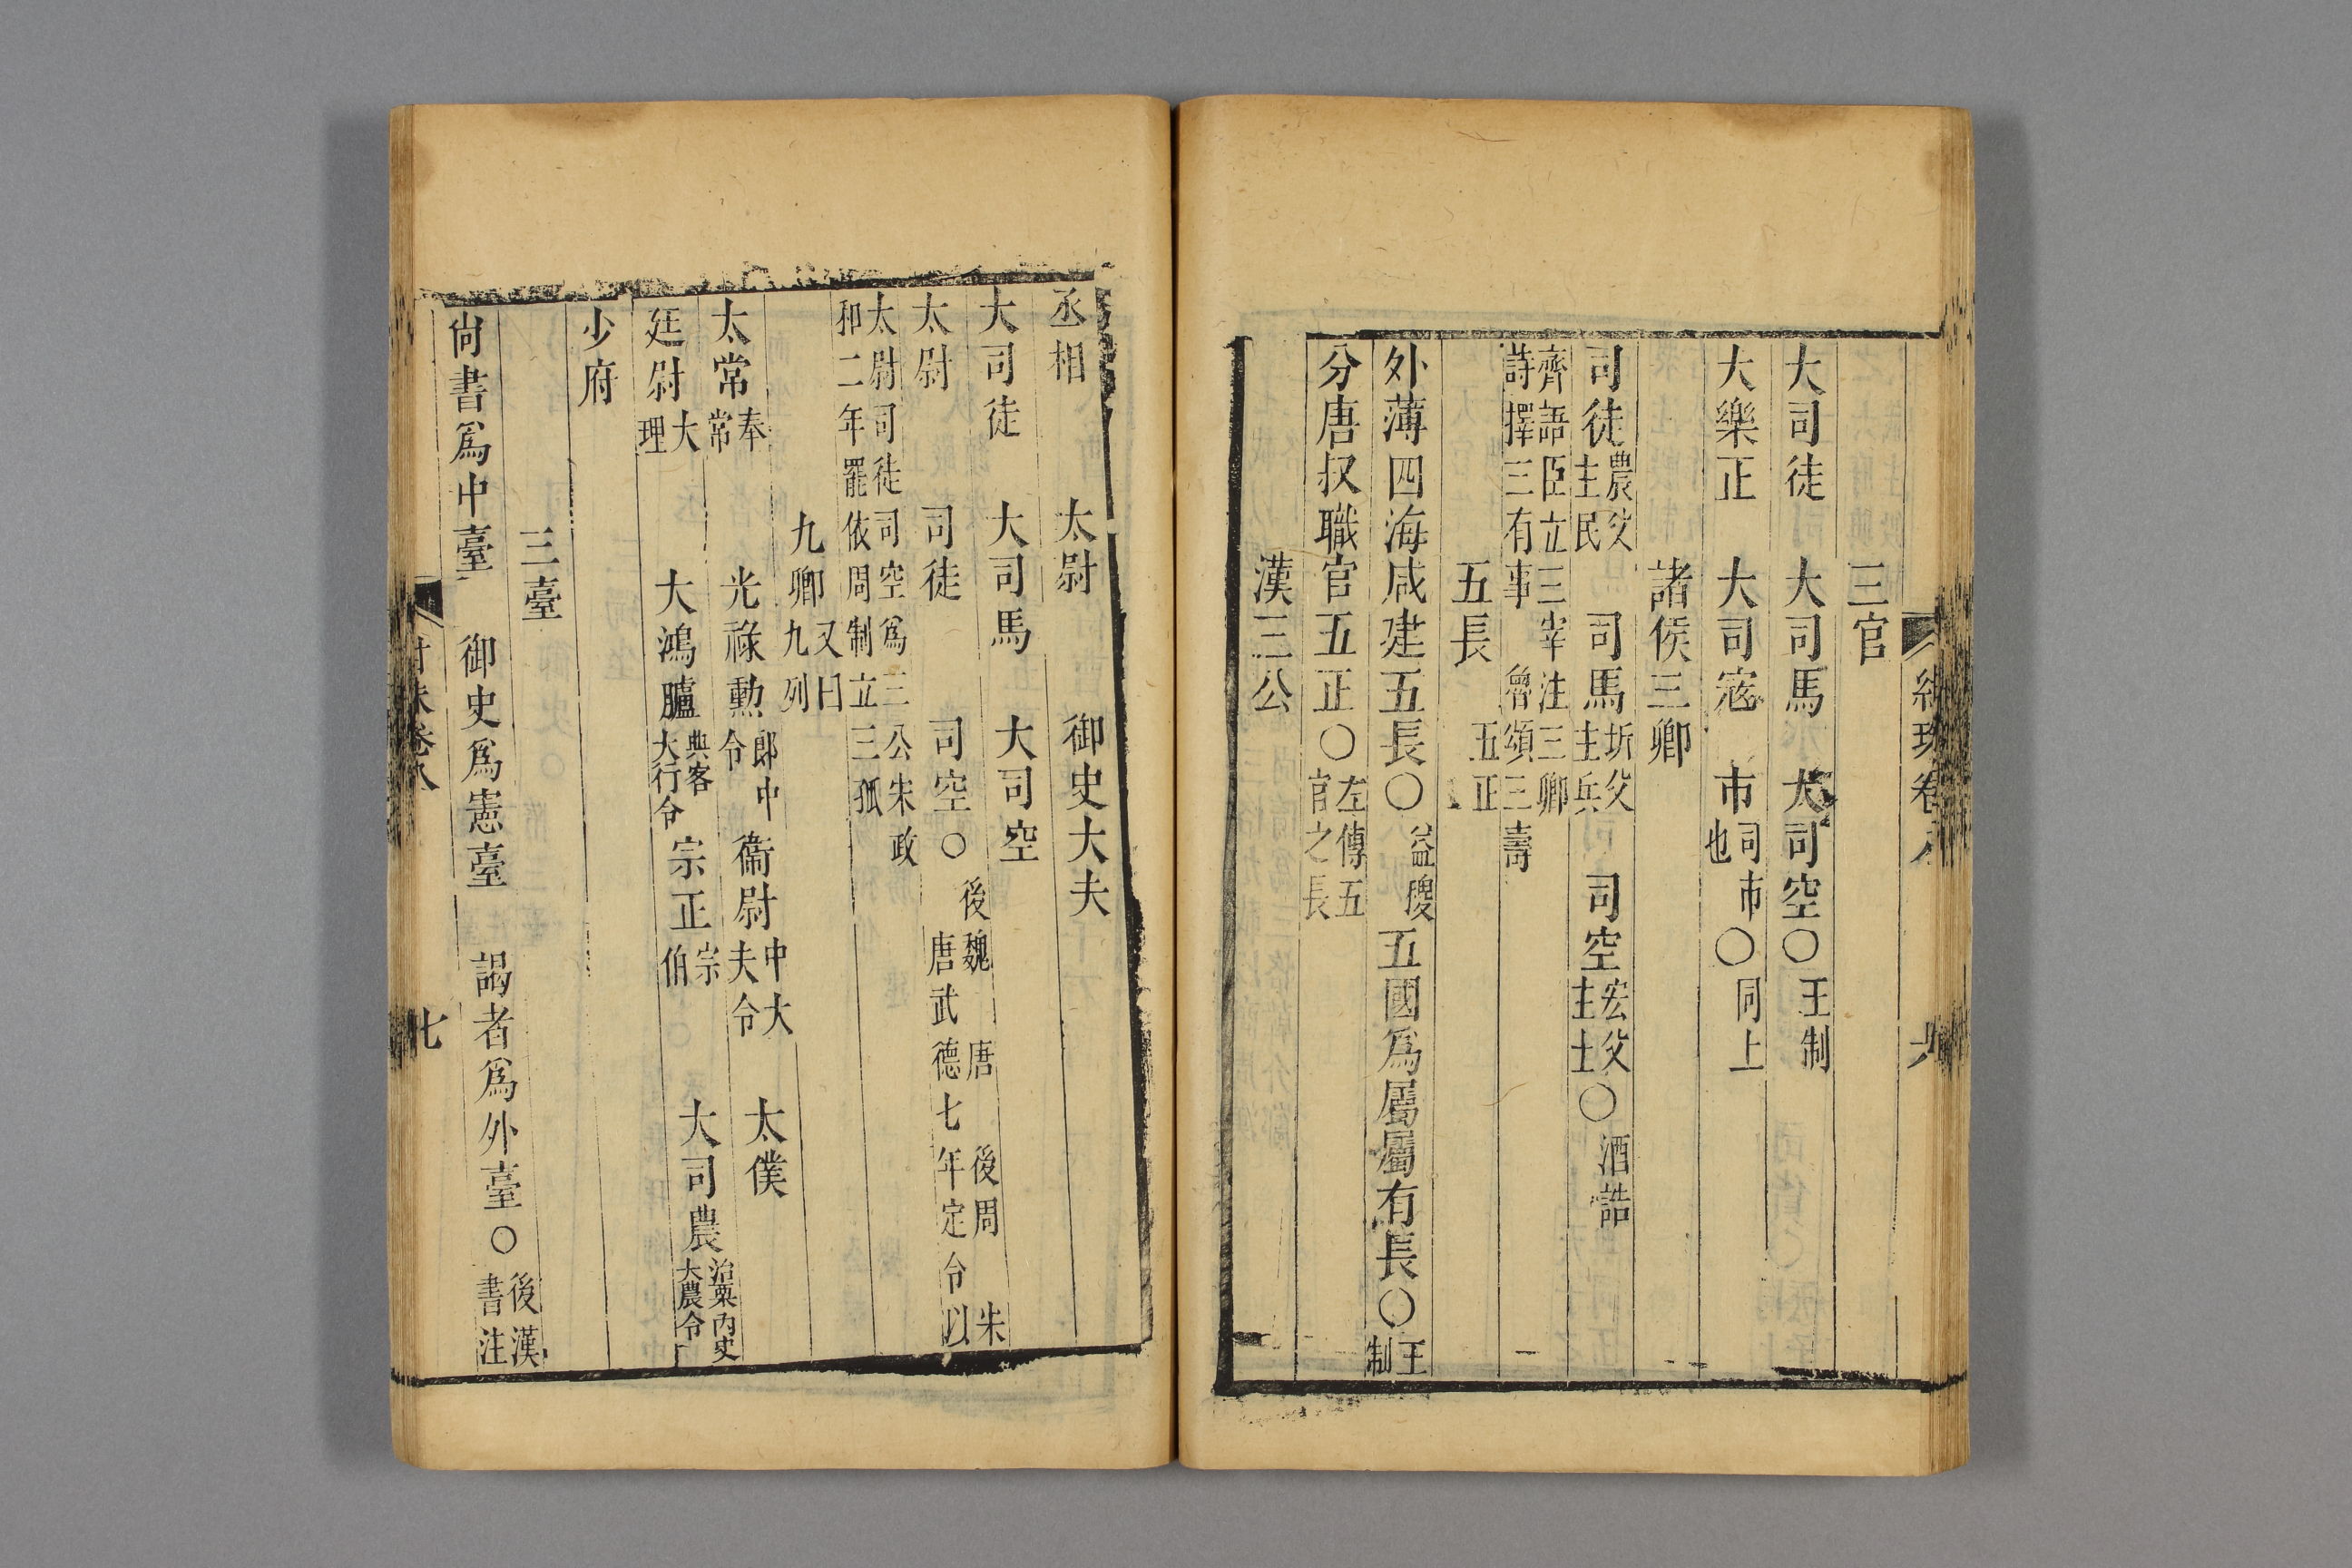 三官
大司徒 大司馬 大司空○王制
大樂正 大司寇 市司市也○同上
諸侯三卿
司徒農父主民 司馬圻父主兵 司空宏父主土○酒誥
齊語臣立三宰注三卿
詩擇三有事 魯頌三壽
五長 五正
外薄四海咸建五長○益稷五國爲屬屬有長○王制
分唐叔職官五正○左傳五官之長
漢三公
丞相 太尉 御史大夫
大司徒 大司馬 大司空
太尉 司徒 司空○後魏 唐 後周 朱
唐武德七年定令以
太尉司徒司空爲三公朱政
和二年罷依周制立三孤
九卿又曰九列
太常奉常 光祿勲郎中令 衞尉中大夫令 太僕
廷尉大理 大鴻臚典客大行令 宗正宗伯 大司農治粟內史大農令
少府
三臺
尙書爲中臺 御史爲憲臺 謁者爲外臺○後漢書注
七